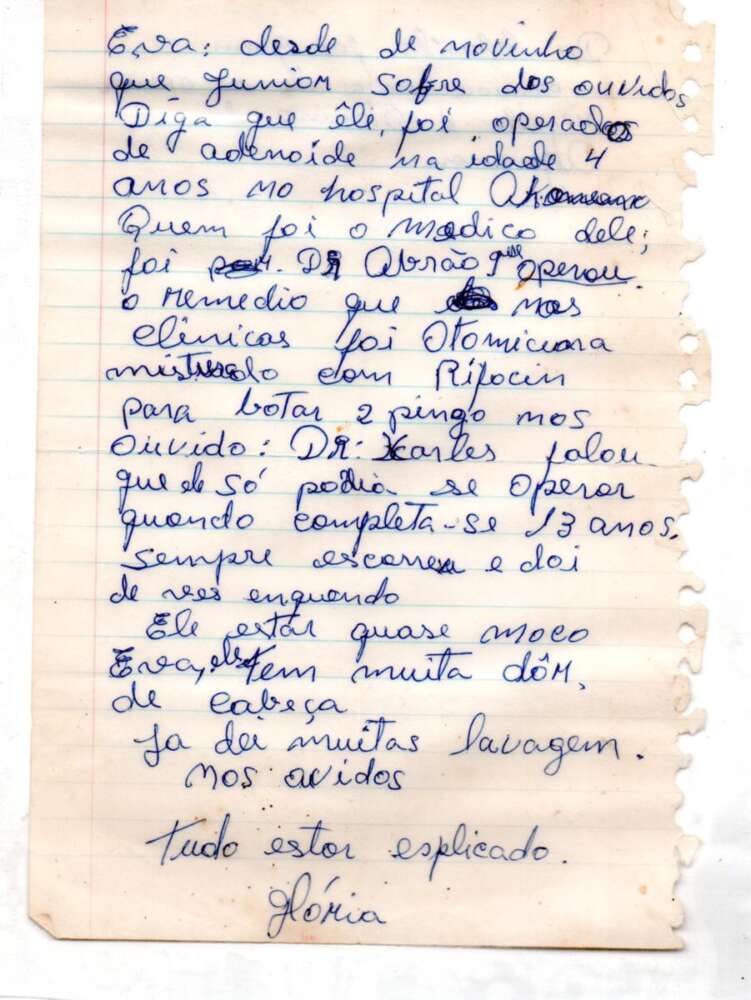 Eva: desde de novinho
que Junior sofre dos ouvidos
Diga que êle, foi operado
de adenoide na idade 4
anos no hospital
Quem foi o medico dele;
foi Dr Abrão q operou.
o remedio que nas
clinicas foi Otomicina
misturado com Rifocin
para botar 2 pingo nos
ouvido: Dr: Karles falou
que ele só podia se operar
quando completa-se 13 anos.
sempre escorreu e doi
de ves enquando
Ele estar quase moco
Eva, ele tem muita dôr,
de cabeça
Ja dei muitas lavagem.
nos ovidos
Tudo estar esplicado.
Glória